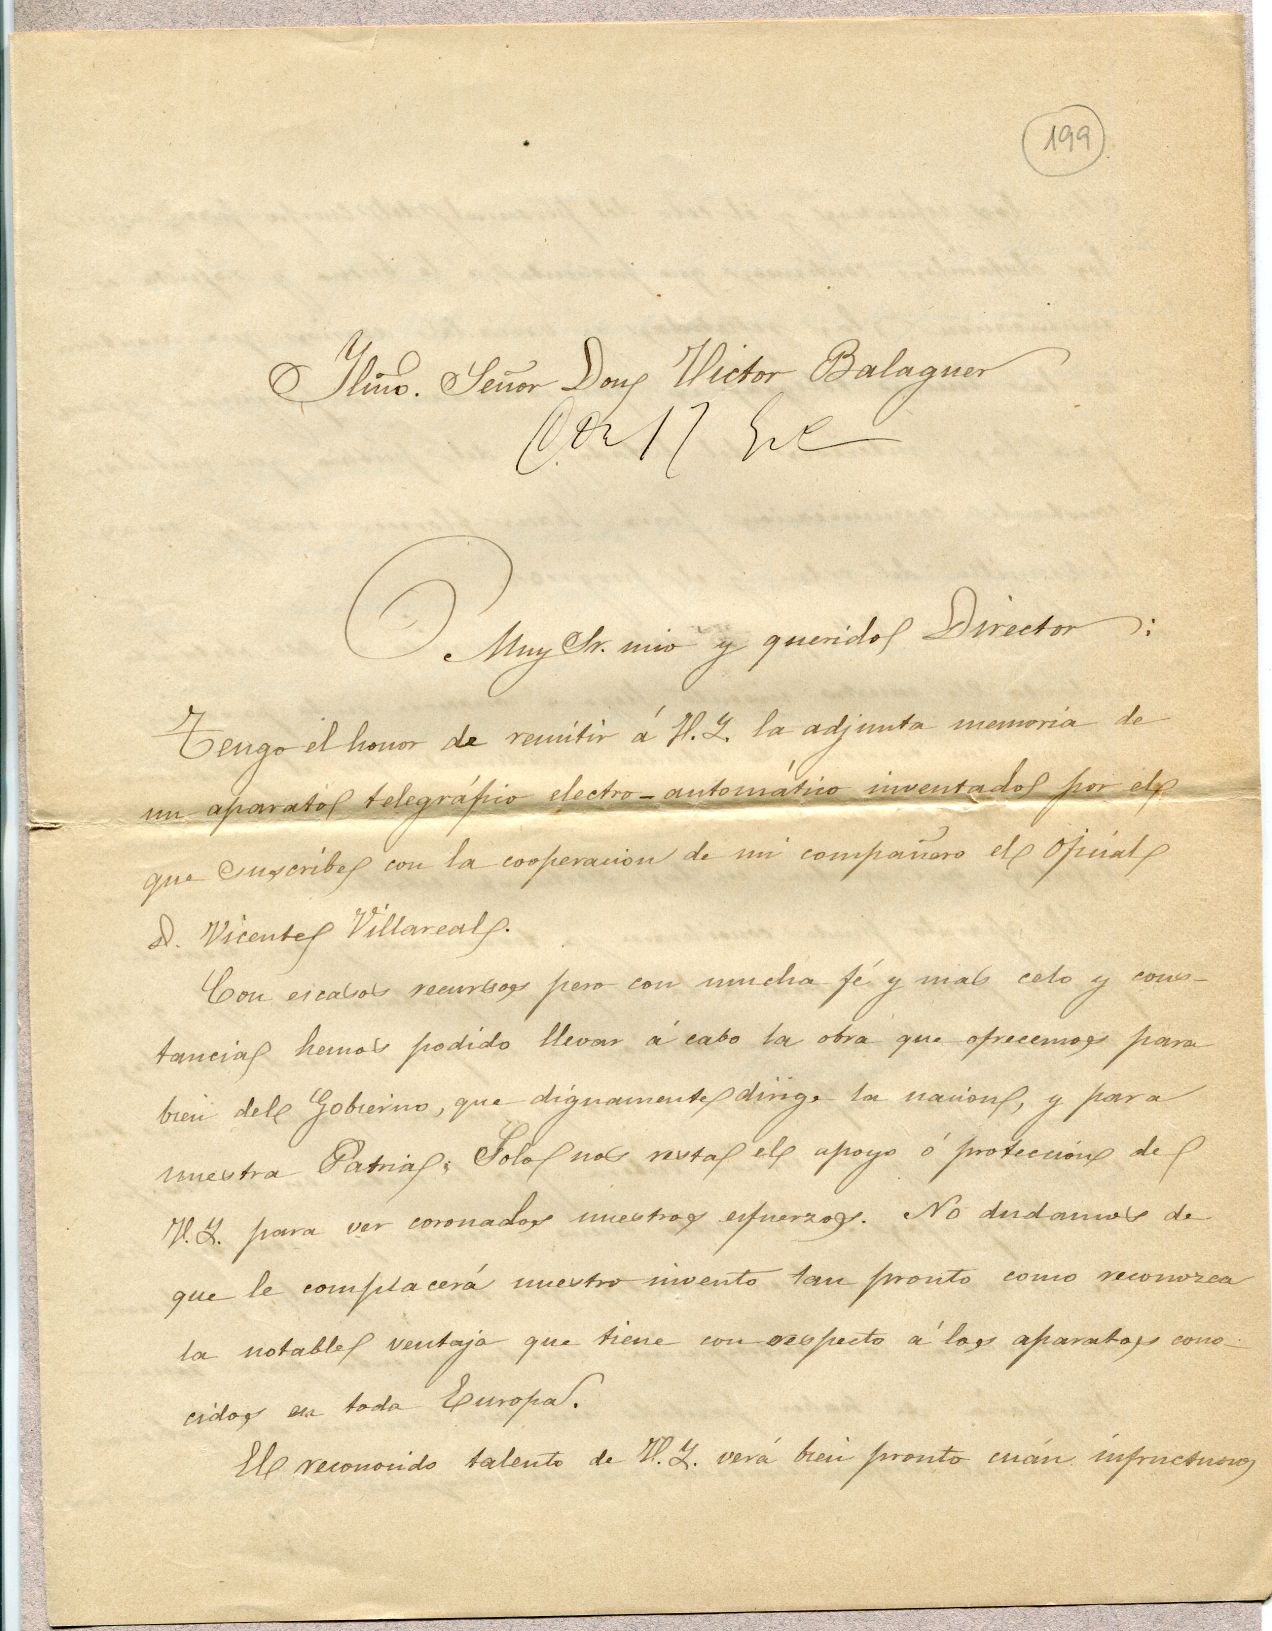 199
Ylmo. Señor Don Victor Balaguer
17
Muy Sr. mio y querido Director:
Tengo el honor de remitir á V.Y. la adjunta memoria de
un aparato telegráfico electro-automático inventado por el
que suscribe con la cooperacion de mi compañero el Oficial
D. Vicente Villareal.
Con escasos recursos pero con mucha fé y mas celo y cons-
tancia hemos podido llevar á cabo la obra que ofrecemos para
bien del Gobierno, que dignamente dirige la nacion, y para
nuestra Patria; Solo nos resta el apoyo ó proteccion de
V.Y. para ver coronados nuestros esfuerzos. No dudamos de
que le complacerá nuestro invento tan pronto como reconozca
la notable ventaja que tiene con respecto á los aparatos cono-
cidos en toda Europa.
El reconocido talento de V.Y. verá bien pronto cuán infructuosos